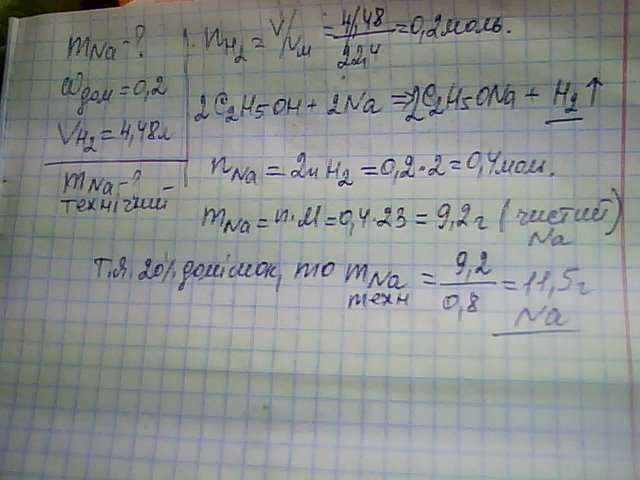 mNa-?
ωдом=0,2
VH₂=4,48л
mNa-?
технічний
nH₂ = V/Vм = 4,48/22,4 = 0,2 моль.
2C₂H₅OH + 2Na = 2C₂H₅ONa + H₂↑
nNa = 2nH₂ = 0,2·2 = 0,4 мол.
mNa = n·M = 0,4·23 = 9,2г (чистий Na)
Т.я. 20% домішок, то mNa техн = 9,2/0,8 = 11,5г Na